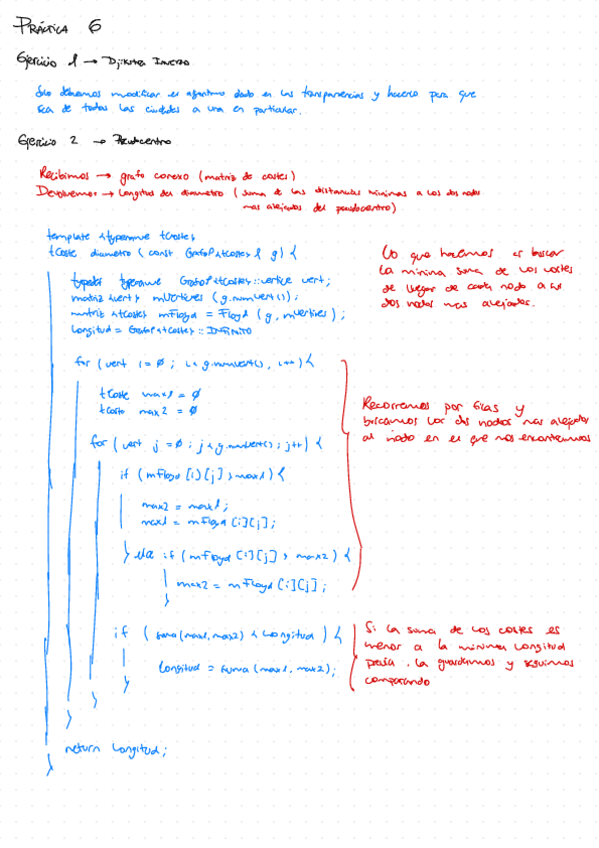 PRÁCTICA 6
Ejercicio 1 → Dijkstra Inverso
Solo debemos modificar el algoritmo dado en las transparencias y hacerlo para que
sea de todas las ciudades a una en particular.
Ejercicio 2 → Pseudocentro
Recibimos → grafo conexo (matriz de costes)
Devolvemos → Longitud del diametro (suma de las distancias minimas a los dos nodos
mas alejados del pseudocentro)
template <typename tCoste>
tCoste diametro (const GrafoP<tCoste> & g) {
Lo que hacemos es buscar
la minima suma de los costes
de llegar de cada nodo a sus
dos nodos mas alejados.
typedef typename GrafoP<tCoste>::vertice vert;
matriz <vert> mVertices (g.numVert());
matriz <tCoste> mFloyd = Floyd (g, mVertices);
Longitud = GrafoP<tCoste>::INFINITO
for (vert i = 0; i < g.numVert(), i++) {
tCoste max1 = 0
tCoste max2 = 0
Recorremos por filas y
buscamos los dos nodos mas alejados
al nodo en el que nos encontramos
for (vert j = 0; j < g.numVert(); j++) {
if (mFloyd [i][j] > max1) {
max2 = max1;
max1 = mFloyd [i][j];
} else if (mFloyd [i][j] > max2) {
max2 = mFloyd [i][j];
}
if (suma(max1, max2) < Longitud) {
Longitud = suma (max1, max2);
}
Si la suma de los costes es
menor a la minima longitud
previa, la guardamos y seguimos
comparando
}
}
return Longitud;
}